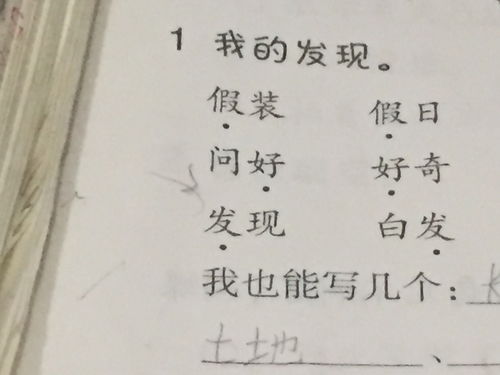 1 我的发现。
假装 假日
问好 好奇
发现 白发
我也能写几个：
土地、